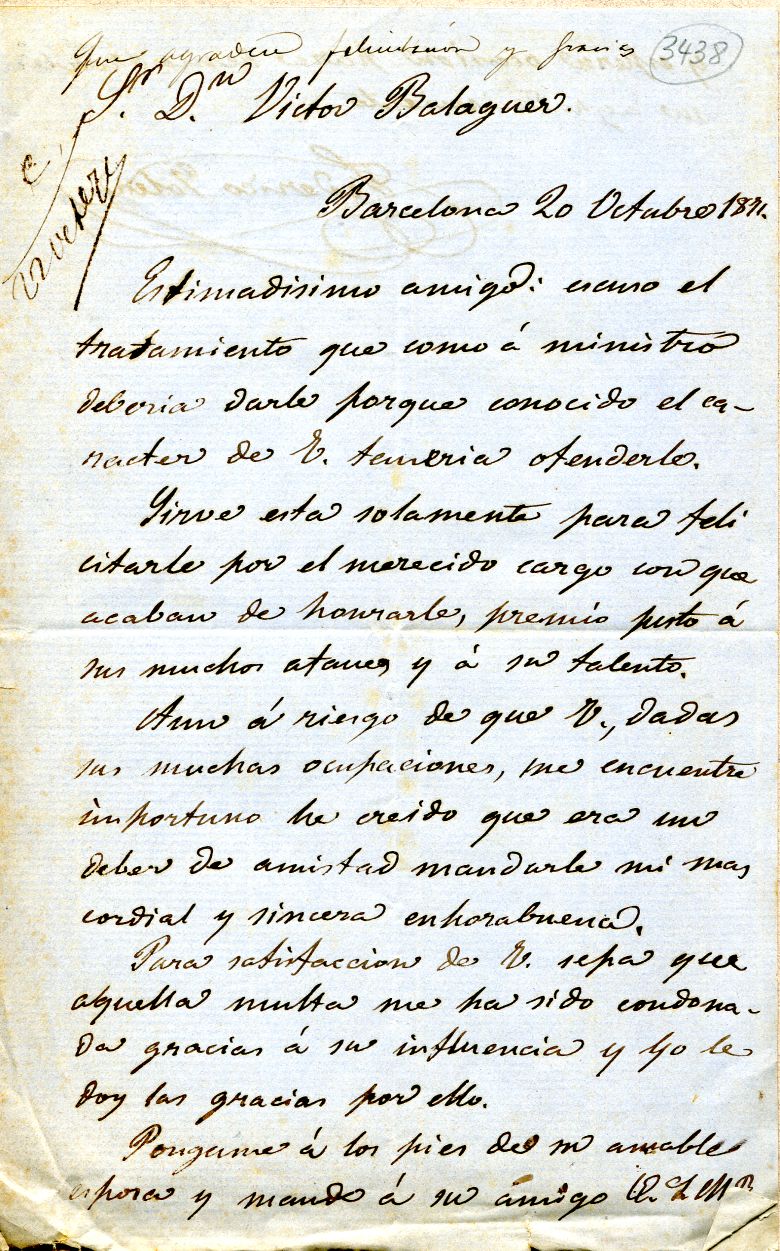 Que agradece felicitación y gracias
3438
Sr. Dn Victor Balaguer.
C.
22 octere
Barcelona 20 Octubre 1871.
Estimadisimo amigo: escuso el
tratamiento que como á ministro
deberia darle porque conocido el ca-
racter de V. temeria ofenderle.
Sirve esta solamente para feli
citarle por el merecido cargo con que
acaban de honrarle, premio justo á
sus muchos afanes y á su talento.
Aun á riesgo de que V., dadas
sus muchas ocupaciones, me encuentre
importuno he creido que era un
deber de amistad mandarle mi mas
cordial y sincera enhorabuena.
Para satisfaccion de V. sepa que
aquella multa me ha sido condona-
da gracias á su influencia y yo le
doy las gracias por ello.
Pongame á los pies de su amable
esposa y mande á su amigo